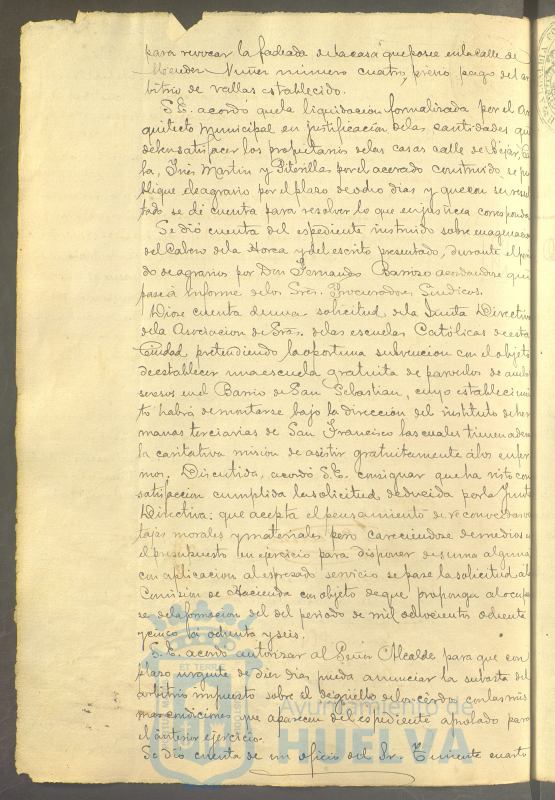 para revocar la fachada de la casa que posee en la calle de
Mendez Nuñez número cuatro, previo pago del ar
bitrio de vallas establecido.
S.E. acordó que la liquidacion formalizada por el Ar
quitecto Municipal en justificacion de las cantidades que
deben satisfacer los propietarios de las casas calle de Bejar,
Ines Martin y por el acerado construido, se pu
blique el agravio por el plazo de ocho dias y que con su resul
tado se dé cuenta para resolver lo que en justicia corresponda
Se dió cuenta del espediente instruido sobre enagenacion
del Cabezo de la Horca y del escrito presentado, durante el perio
do de agravios por Don Fernando Barroso acordandose que
pase á informe de los Sres. Procuradores Sindicos.
Diose cuenta de una solicitud de la Junta Directiva
de la Asociacion de Sras. de las escuelas Católicas de esta
Ciudad pretendiendo la oportuna subvencion con el objeto
de establecer una escuela gratuita de parvulos de ambos
sexos en el Barrio de San Sebastian, cuyo establecimien
to habrá de montarse bajo la direccion del instituto de her
manas terciarias de San Francisco las cuales tienen ademas
la caritativa mision de asistir gratuitamente á los enfer
mos. Discutida, acordó S.E. consignar que ha visto con
satisfaccion cumplida la solicitud deducida por la Junta
Directiva; que acepta el pensamiento de reconocidas ven
tajas morales y materiales, pero careciendose de medios en
el presupuesto en ejercicio para disponer de suma alguna
con aplicacion al espresado servicio se pase la solicitud á la
Comision de Hacienda con objeto de que proponga al ocupar
se de la formacion del del periodo de mil ochocientos ochenta
y cinco á ochenta y seis.
S.E. acordó autorizar al Señor Alcalde para que con
plazo urgente de diez dias pueda anunciar la subasta del
arbitrio impuesto sobre el degüello de los cerdos, con las mis
mas condiciones que aparecen del espediente aprobado para
el anterior ejercicio.
Se dió cuenta de un oficio del Sr. Teniente cuarto
ET TERRÆ
Ayuntamiento de
HUELVA